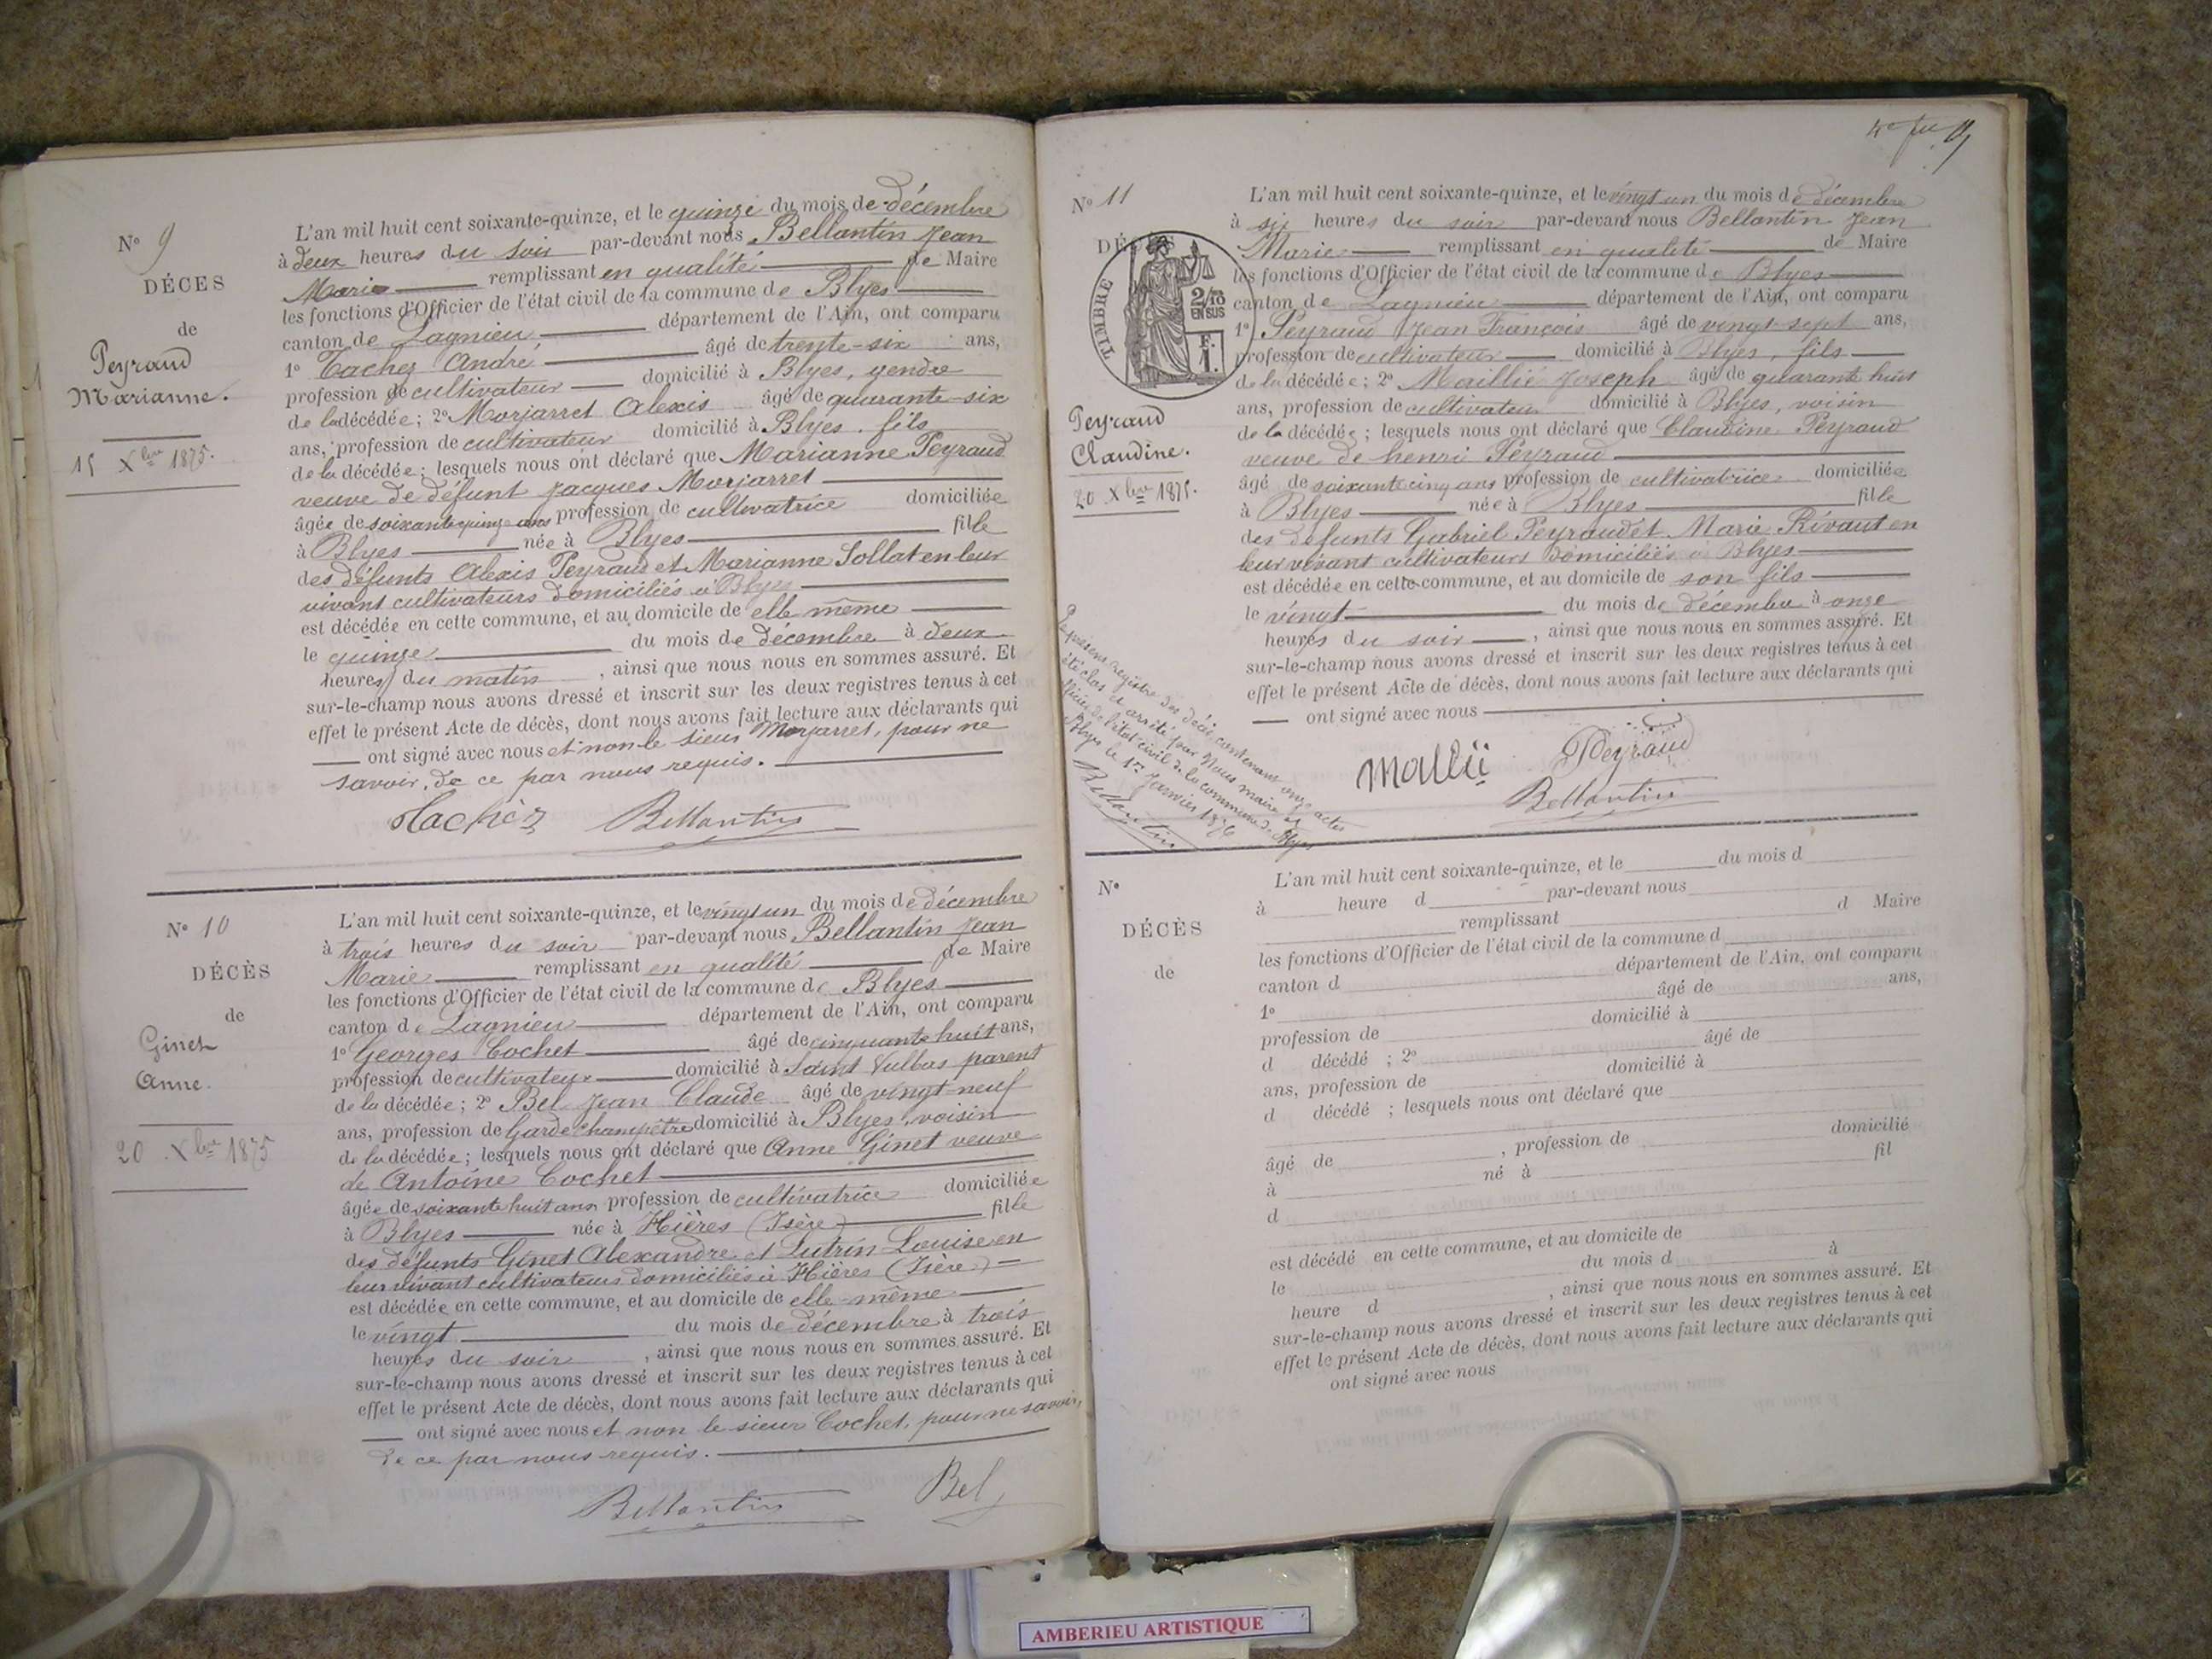 N° 9
DÉCES
de
Peyraud
Marianne.
15 Xbre 1875.
L'an mil huit cent soixante-quinze, et le quinze du mois de décembre
à deux heures du soir par-devant nous Bellantin Jean
Marie remplissant en qualité de Maire
les fonctions d'Officier de l'état civil de la commune de Blyes
canton de Lagnieu département de l'Ain, ont comparu
1° Tachez André âgé de trente-six ans,
profession de cultivateur domicilié à Blyes, gendre
de la décédée; 2° Morjarret Alexis âgé de quarante-six
ans, profession de cultivateur domicilié à Blyes. fils
de la décédée; lesquels nous ont déclaré que Marianne Peyraud
veuve de défunt Jacques Morjarret
âgée de soixante quinze ans profession de cultivatrice domiciliée
à Blyes née à Blyes fille
des défunts Alexis Peyraud et Marianne Sollat en leur
vivant cultivateurs domiciliés à Blyes
est décédée en cette commune, et au domicile de elle même
le quinze du mois de décembre à deux
heures du matin, ainsi que nous nous en sommes assuré. Et
sur-le-champ nous avons dressé et inscrit sur les deux registres tenus à cet
effet le présent Acte de décès, dont nous avons fait lecture aux déclarants qui
ont signé avec nous et non le sieur Morjarret, pour ne
savoir, de ce par nous requis.
Tachez Bellantin
N° 10
DÉCÈS
de
Ginet
Anne.
20 Xbre 1875
L'an mil huit cent soixante-quinze, et le vingt un du mois de décembre
à trois heures du soir par-devant nous Bellantin Jean
Marie remplissant en qualité de Maire
les fonctions d'Officier de l'état civil de la commune de Blyes
canton de Lagnieu département de l'Ain, ont comparu
1° Georges Cochet âgé de cinquante huit ans,
profession de cultivateur domicilié à Saint Vulbas parent
de la décédée; 2° Bel Jean Claude âgé de vingt-neuf
ans, profession de Garde champêtre domicilié à Blyes, voisin
de la décédée; lesquels nous ont déclaré que Anne Ginet veuve
de Antoine Cochet
âgée de soixante huit ans profession de cultivatrice domiciliée
à Blyes née à Hières (Isère) fille
des défunts Ginet Alexandre et Lutrin Louise en
leur vivant cultivateurs domiciliés à Hières (Isère)
est décédée en cette commune, et au domicile de elle-même
le vingt du mois de décembre à trois
heures du soir, ainsi que nous nous en sommes assuré. Et
sur-le-champ nous avons dressé et inscrit sur les deux registres tenus à cet
effet le présent Acte de décès, dont nous avons fait lecture aux déclarants qui
ont signé avec nous et non le sieur Cochet, pour ne savoir,
de ce par nous requis.
Bellantin Bel
N° 11
DÉCÈS
TIMBRE
2/10
EN SUS
F.
1.
Peyraud
Claudine.
20 Xbre 1875.
L'an mil huit cent soixante-quinze, et le vingt un du mois de décembre
à six heures du soir par-devant nous Bellantin Jean
Marie remplissant en qualité de Maire
les fonctions d'Officier de l'état civil de la commune de Blyes
canton de Lagnieu département de l'Ain, ont comparu
1° Peyraud Jean François âgé de vingt-sept ans,
profession de cultivateur domicilié à Blyes, fils
de la décédée; 2° Maillié Joseph âgé de quarante huit
ans, profession de cultivateur domicilié à Blyes, voisin
de la décédée; lesquels nous ont déclaré que Claudine Peyraud
veuve de henri Peyraud
âgé de soixante cinq ans profession de cultivatrice domiciliée
à Blyes née à Blyes fille
des défunts Gabriel Peyraud et Marie Rivaut en
leur vivant cultivateurs domiciliés à Blyes
est décédée en cette commune, et au domicile de son fils
le vingt du mois de décembre à onze
heures du soir, ainsi que nous nous en sommes assuré. Et
sur-le-champ nous avons dressé et inscrit sur les deux registres tenus à cet
effet le présent Acte de décès, dont nous avons fait lecture aux déclarants qui
ont signé avec nous
Mallié Peyraud
Bellantin
Le présent registre des décès contenant onze actes
été clos et arrêté par Nous maire et
officier de l'état civil de la commune de Blyes
Blyes le 1er Janvier 1876
Bellantin
N°
DÉCÈS
de
L'an mil huit cent soixante-quinze, et le du mois d
à heure d par-devant nous
remplissant d Maire
les fonctions d'Officier de l'état civil de la commune d
canton d département de l'Ain, ont comparu
1° âgé de ans,
profession de domicilié à
d décédé ; 2° âgé de
ans, profession de domicilié à
d décédé ; lesquels nous ont déclaré que
âgé de , profession de domicilié
à né à fil
d
est décédé en cette commune, et au domicile de
le du mois d à
heure d , ainsi que nous nous en sommes assuré. Et
sur-le-champ nous avons dressé et inscrit sur les deux registres tenus à cet
effet le présent Acte de décès, dont nous avons fait lecture aux déclarants qui
ont signé avec nous
AMBERIEU ARTISTIQUE